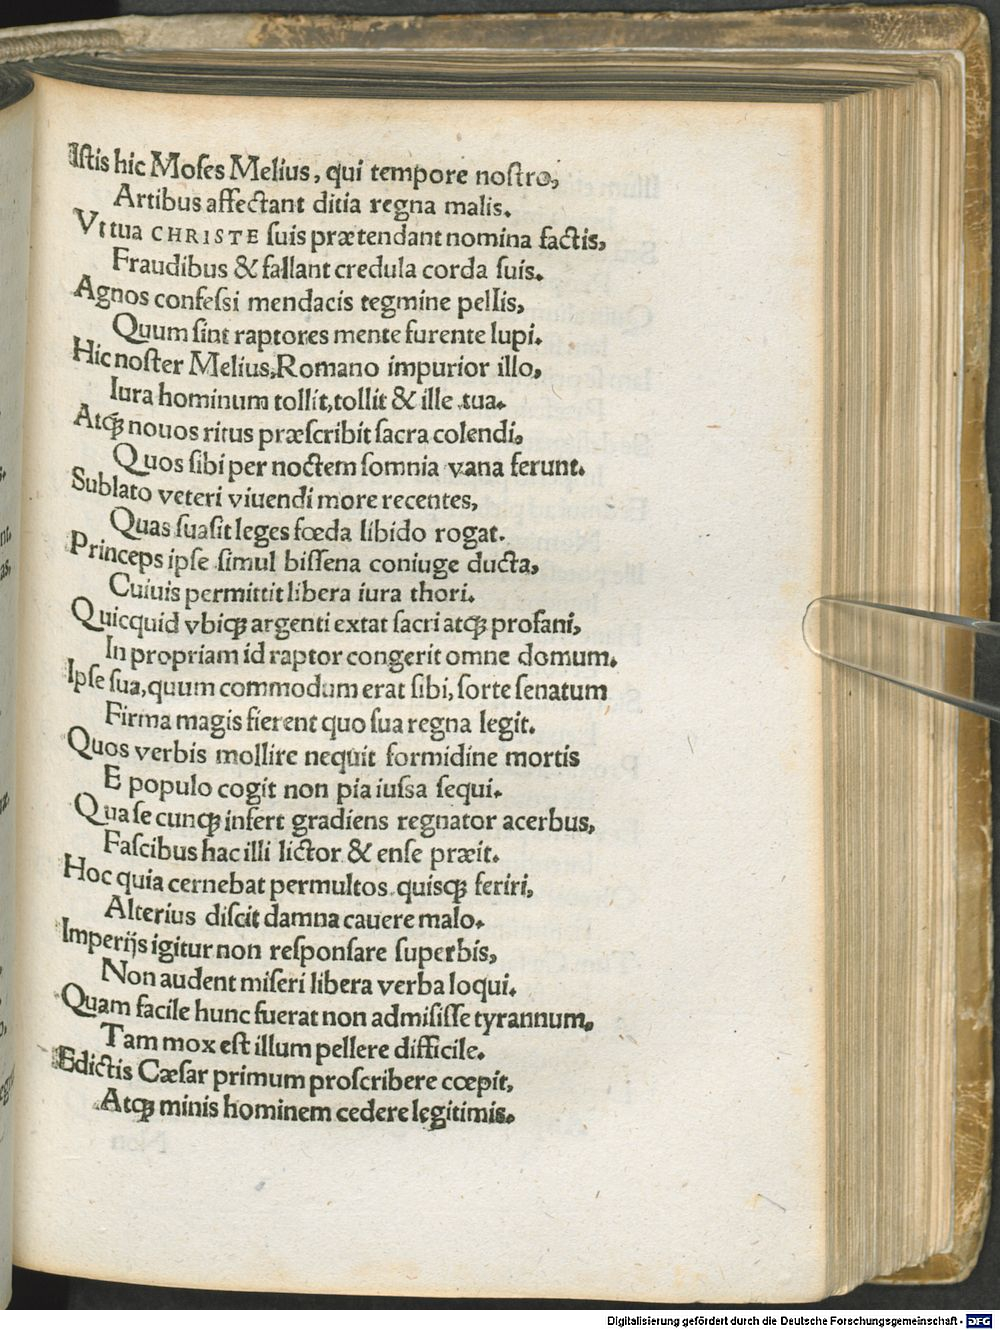 Istis hic Moſes Melius, qui tempore noſtro,
Artibus affectant ditia regna malis.
Vt tua CHRISTE ſuis prætendant nomina factis,
Fraudibus & fallant credula corda ſuis.
Agnos confeſſi mendacis tegmine pellis,
Quum ſint raptores mente furente lupi.
Hic noſter Melius, Romano impurior illo,
Iura hominum tollit, tollit & ille tua.
Atqꝫ nouos ritus præſcribit ſacra colendi,
Quos ſibi per noctem ſomnia vana ferunt.
Sublato veteri viuendi more recentes,
Quas ſuaſit leges fœda libido rogat.
Princeps ipſe ſimul biſſena coniuge ducta,
Cuiuis permittit libera iura thori.
Quicquid vbiqꝫ argenti extat ſacri atqꝫ profani,
In propriam id raptor congerit omne domum.
Ipſe ſua, quum commodum erat ſibi, ſorte ſenatum
Firma magis fierent quo ſua regna legit.
Quos verbis mollire nequit formidine mortis
E populo cogit non pia iuſſa ſequi.
Qua ſe cunqꝫ infert gradiens regnator acerbus,
Faſcibus hac illi lictor & enſe præit.
Hoc quia cernebat permultos quisqꝫ feriri,
Alterius diſcit damna cauere malo.
Imperijs igitur non reſponſare ſuperbis,
Non audent miſeri libera verba loqui.
Quam facile hunc fuerat non admiſiſſe tyrannum,
Tam mox eſt illum pellere difficile.
Edictis Cæſar primum proſcribere cœpit,
Atqꝫ minis hominem cedere legitimis.
Digitalisierung gefördert durch die Deutsche Forschungsgemeinschaft - DFG